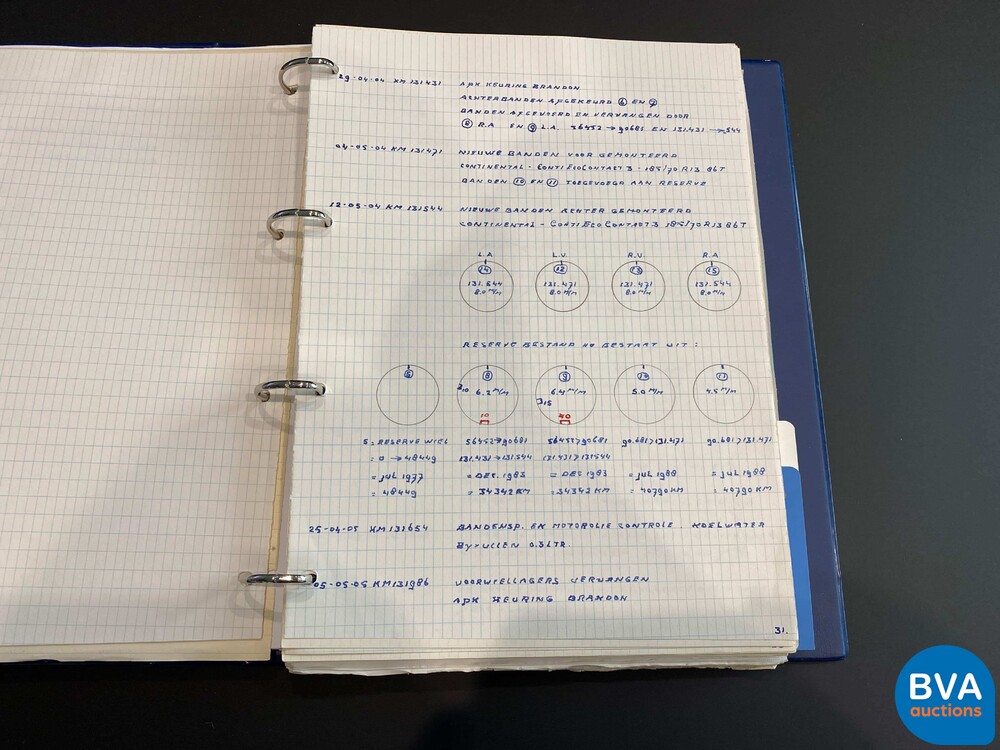 29-04-04 KM 131431 APK KEURING BRANDON
ACHTERBANDEN AFGEKEURD 6 EN 7
BANDEN AFGEVOERD EN VERVANGEN DOOR
8 R.A EN 9 L.A. 56452 → 90681 EN 131.431 → 544
04-05-04 KM 131471 NIEUWE BANDEN VOOR GEMONTEERD
CONTINENTAL - CONTI ECOCONTACT 3 - 185/70 R13 86T
BANDEN 10 EN 11 TOEGEVOEGD AAN RESERVE
12-05-04 KM 131544 NIEUWE BANDEN ACHTER GEMONTEERD
CONTINENTAL - CONTI ECO CONTACT 3 185/70 R13 86T
L.A L.V. R.V R.A
14 12 13 15
131.544 131.471 131.471 131.544
8.0 M/M 8.0 M/M 8.0 M/M 8.0 M/M
RESERVE BESTAND NU BESTAAT UIT:
5 8 9 10 11
6.2 M/M 6.4 M/M 5.0 M/M 4.5 M/M
10 40
5 = RESERVE WIEL 56452→90681 56452>90681 90.681>131.471 90.681>131.471
= 0 → 48449 131.431→131.544 131.431>131544
= JUL 1977 = DEC. 1983 = DEC 1983 = JUL 1988 = JUL 1988
= 48449 = 34342 KM = 34342 KM = 40790 KM = 40790 KM
25-04-05 KM 131654 BANDENSP. EN MOTOROLIE CONTROLE. KOELWATER
BYVULLEN 0.5 LTR.
05-05-05 KM 131986 VOORWIELLAGERS VERVANGEN
APK KEURING BRANDON
31.
BVA
auctions